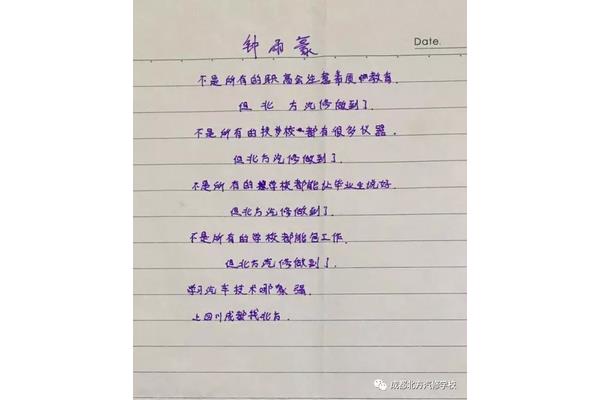 钟雨豪
Date.
不是所有的职高会注意素质的教育.
但北 方汽修做到了.
不是所有的技校都有很多仪器.
但北方汽修做到了.
不是所有的学校都能让毕业生说好.
但北方汽修做到了.
不是所有的学校都能包工作.
但北方汽修做到了.
学习汽车技术哪家强.
上四川成都找北方.
成都北方汽修学校